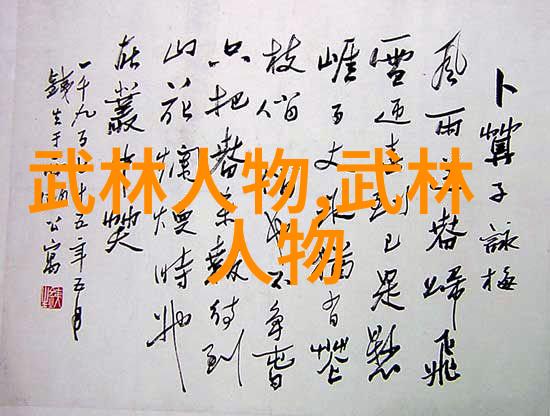 卜算子 詠梅
風雨送春歸飛
雪迎春到已是懸
崖百丈冰猶有花
枝俏 不爭春
只把春來報待到
山花爛漫時她
在叢中笑
一千九百八十五年五月
公寓
武林人物,武林
人物